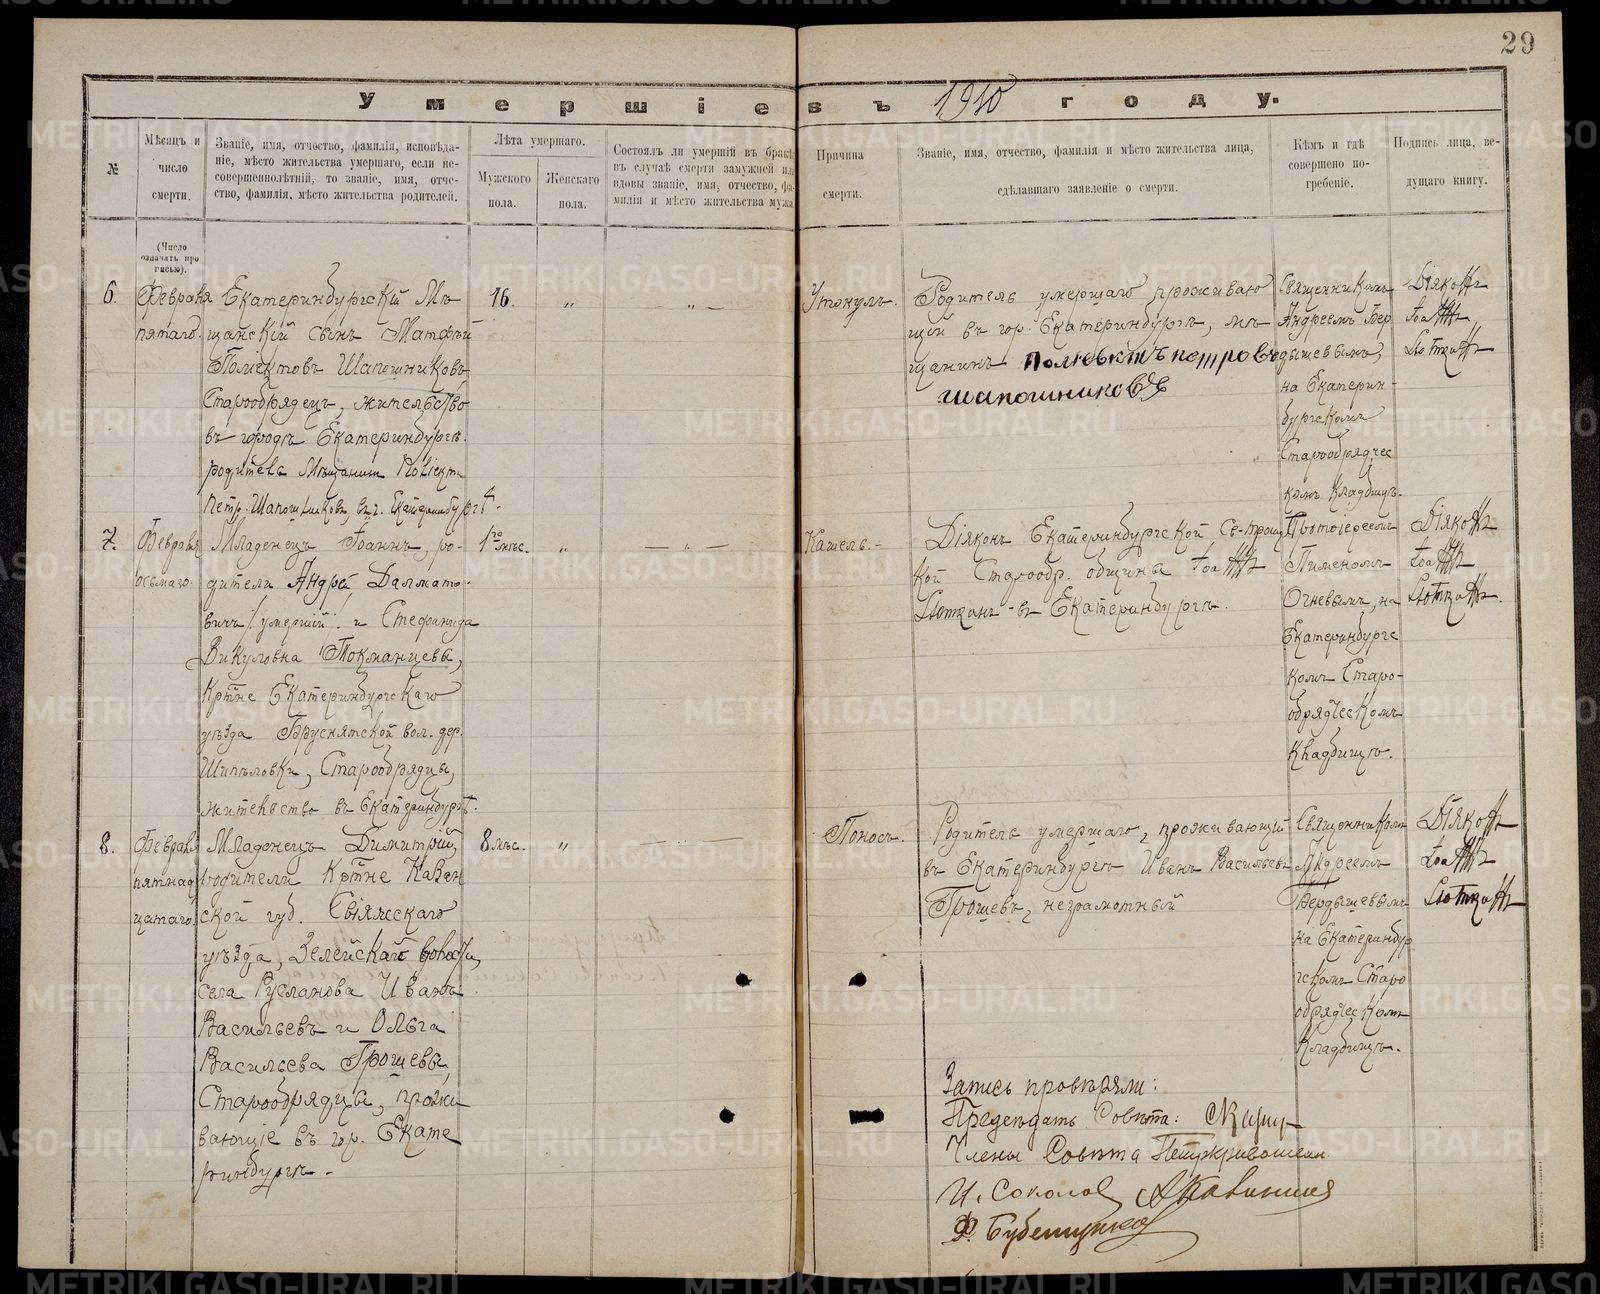 29
Умершіе въ 1910 году.
№
Мѣсяцъ и
число
смерти.
Званіе, имя, отчество, фамилія, исповѣда-
ніе, мѣсто жительства умершаго, если не-
совершеннолѣтній, то званіе, имя, отче-
ство, фамилія, мѣсто жительства родителей.
Лѣта умершаго.
Мужского
пола.
Женскаго
пола.
Состоялъ ли умершій въ бракѣ
въ случаѣ смерти замужней или
вдовы званіе, имя, отчество, фа-
милія и мѣсто жительства мужа
Причина
смерти.
Званіе, имя, отчество, фамилія и мѣсто жительства лица,
сдѣлавшаго заявленіе о смерти.
Кѣмъ и гдѣ
совершено по-
гребеніе.
Подпись лица, ве-
дущаго книгу.
(Число
означать про
писью).
6.
Февраля
пятаго.
Екатеринбургскій Мѣ
щанскій сынъ Матфѣй
Поліектовъ Шапошниковъ,
Старообрядецъ, жительство
въ городѣ Екатеринбургѣ.
родитель Мѣщанинъ Поліектъ
Петр. Шапошниковъ, въ г. Екатеринбургѣ.
16.
„
„ —
Утонулъ.
Родитель умершаго проживаю
щій въ гор. Екатеринбургѣ, мѣ
щанинъ Полиектъ петровъ
шапошниковъ
Священникомъ
Андреемъ Бер
дышевымъ,
на Екатерин-
бургскомъ
Старообрядчес
комъ Кладбищѣ.
Діяконъ
Іоаннъ
Лоткан
7.
Февраля
осьмаго.
Младенецъ Іоаннъ, ро-
дители Андрей Далмато-
вичъ /умершій/. и Стефанида
Викуловна Токманцевы,
Кртне Екатеринбургскаго
уѣзда Бруснятской вол. дер.
Шипѣловки, Старообрядцы,
жительство въ Екатеринбургѣ.
1го мѣс.
„
— „ —
Кашель. -
Діяконъ Екатеринбургской Св-Троиц
кой Старообр. община Іоаннъ
Лотканъ - въ Екатеринбургѣ.
Протоіереемъ
Пименомъ
Огневымъ, на
Екатеринбургс
комъ Старо-
обрядческомъ
Кладбищѣ.
Діяконъ
Іоаннъ
Лотканъ.
8.
Февраля
пятнад
цатаго.
Младенецъ Димитрій,
родители Кртне Казан
ской губ. Свіяжскаго
уѣзда, Зелейской волости,
села Русланова Иванъ
Васильевъ и Ольга
Васильева Грошевы,
Старообрядцы, прожи
вающіе въ гор. Екате
ринбургѣ. -
8 мѣс.
„
— — —
Поносъ.
Родитель умершаго, проживающій
въ Екатеринбургѣ Иванъ Васильевъ
Грошевъ, неграмотный
Священникомъ
Андреемъ
Бердышевымъ
на Екатеринбур
гскомъ Старо
обрядческомъ
Кладбищѣ.
Діяконъ
Іоаннъ
Лотканъ
Запись провѣряли:
Предсѣдатъ Совѣта:
Члены Совѣта
И. Соколов
METRIKI.GASO-URAL.RU